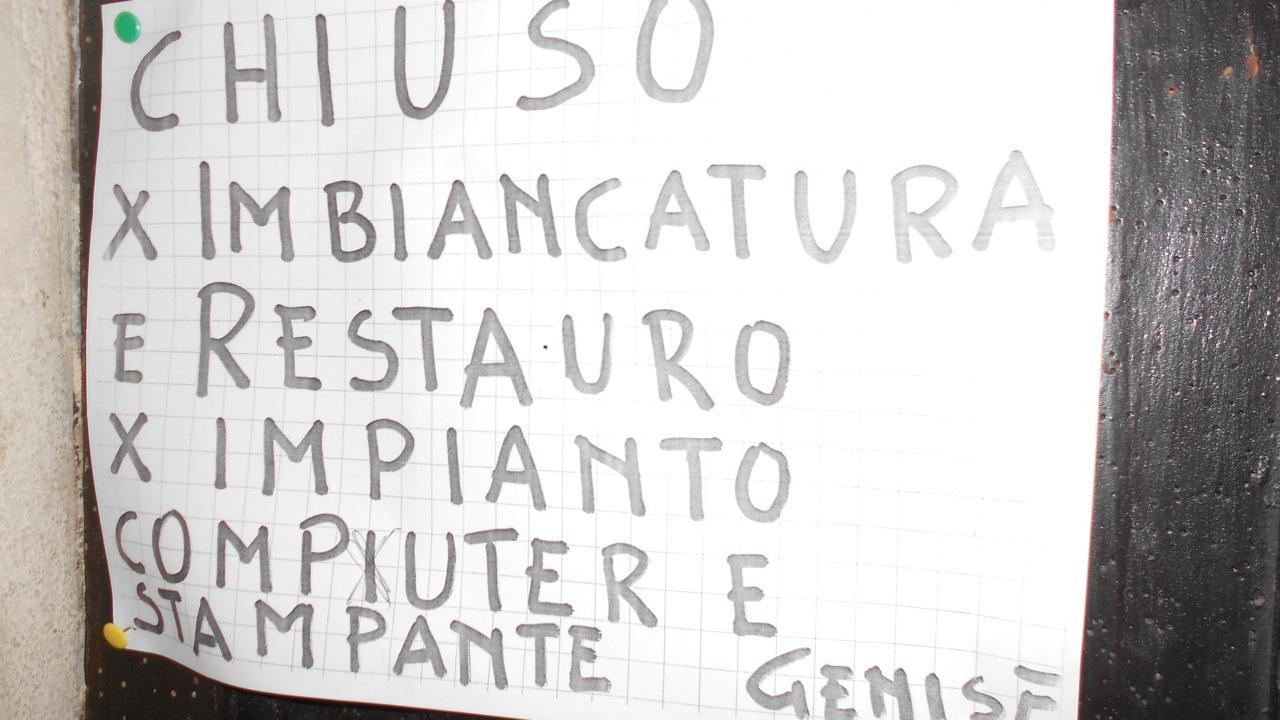 CHIUSO
X IMBIANCATURA
E RESTAURO
X IMPIANTO
COMPIUTER E
STAMPANTE
GENISE